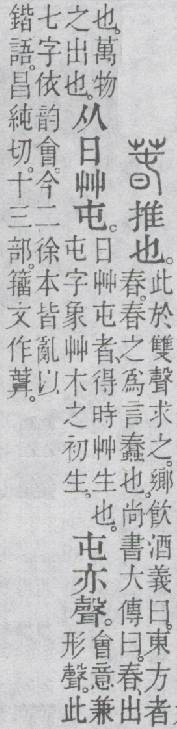 萅推也。
此於雙聲求之。鄉飲酒義曰。東方者
春。春之爲言蠢也。尚書大傳曰。春、出
也。萬物
之出也。
从日艸屯。
日艸屯者、得時艸生也。
屯字象艸木之初生。
屯亦聲。
會意兼
形聲。此
七字依韵會。今二徐本皆亂以
鍇語。昌純切。十三部。籒文作